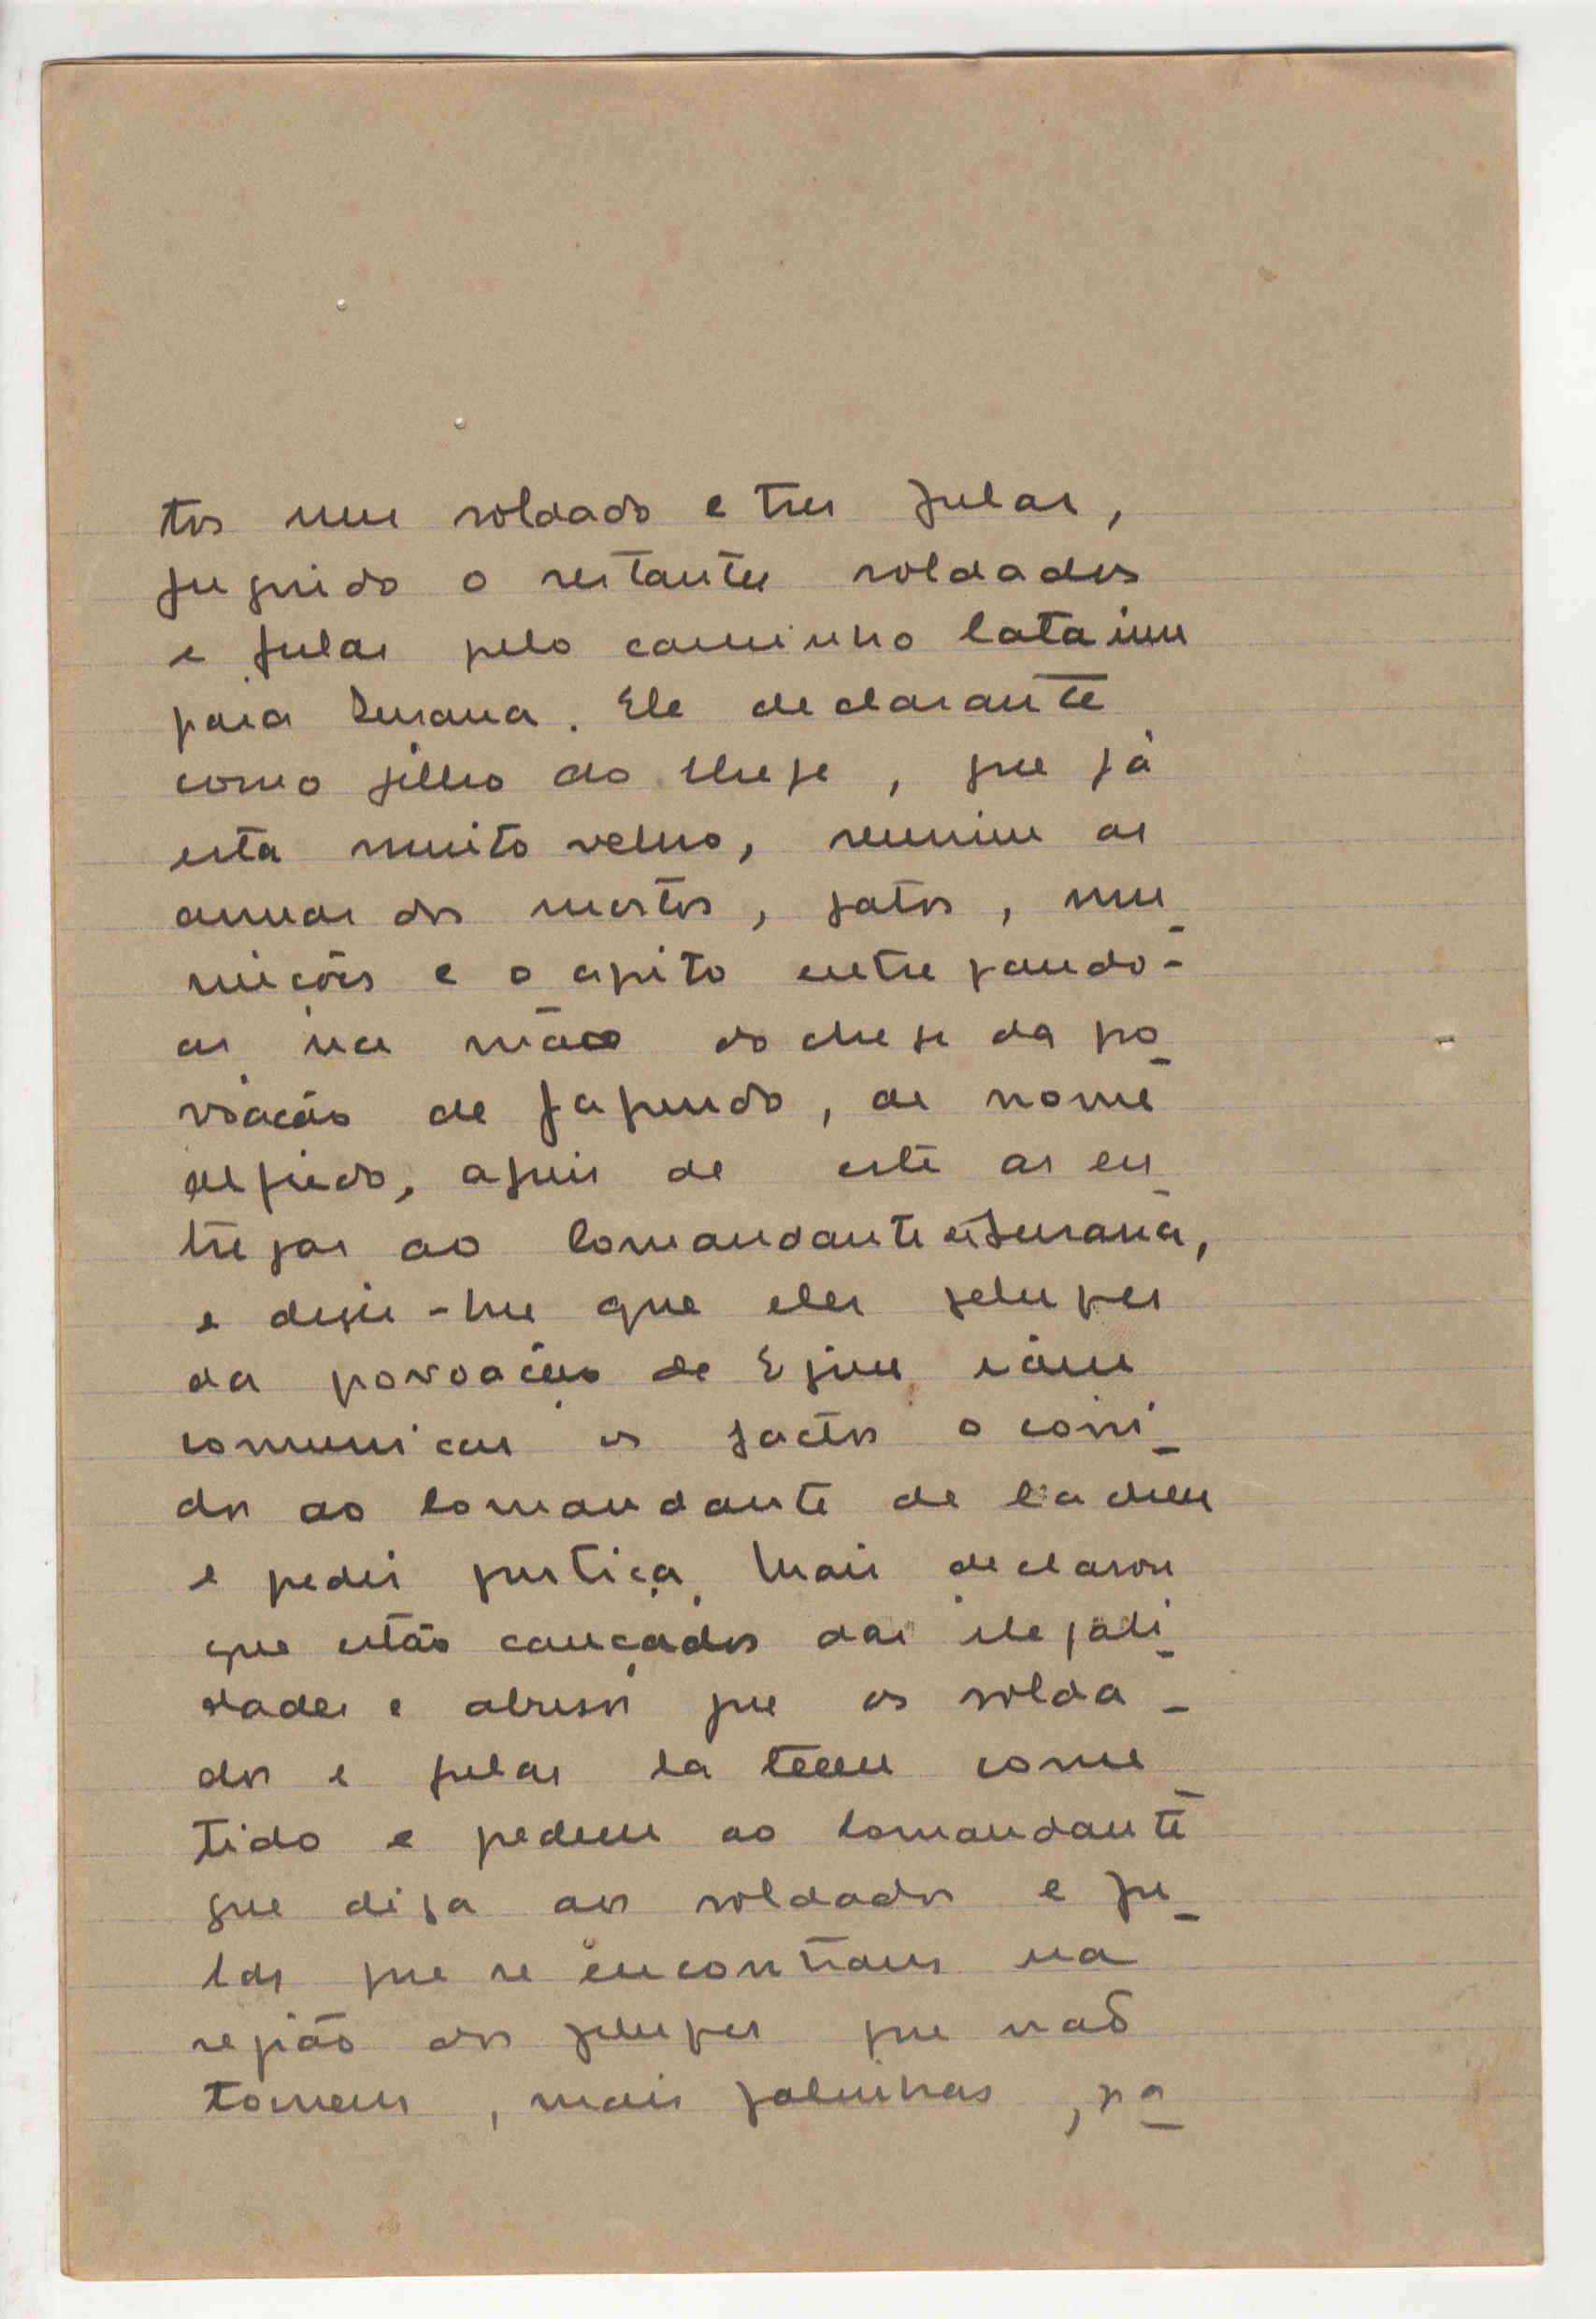 tos um soldado e tres fulas,
fugindo o restantes soldados
e fulas pelo caminho Cataim
para Susana. Ele declarante
como filho do Chefe, que já
esta muito velho, reuniu as
armas dos mortos, fatos, mu_
nições e o apito entregando-
as na mão do chefe da po_
voação de Jafundo, de nome
Alfredo, afim de este as en_
tregar ao Comandante de Susana,
e disse-lhe que eles felupes
da povoação de Egim iam
comunicar os factos ocorri_
dos ao Comandante de Cacheu
e pedir justiça. Mais declarou
que estão cançados das ilegali_
dades e abusos que os solda_
dos e fulas la teem come_
tido e pedem ao Comandante
que diga aos soldados e fu_
las que se encontram na
região dos felupes que não
tomem, mais galinhas, pa_